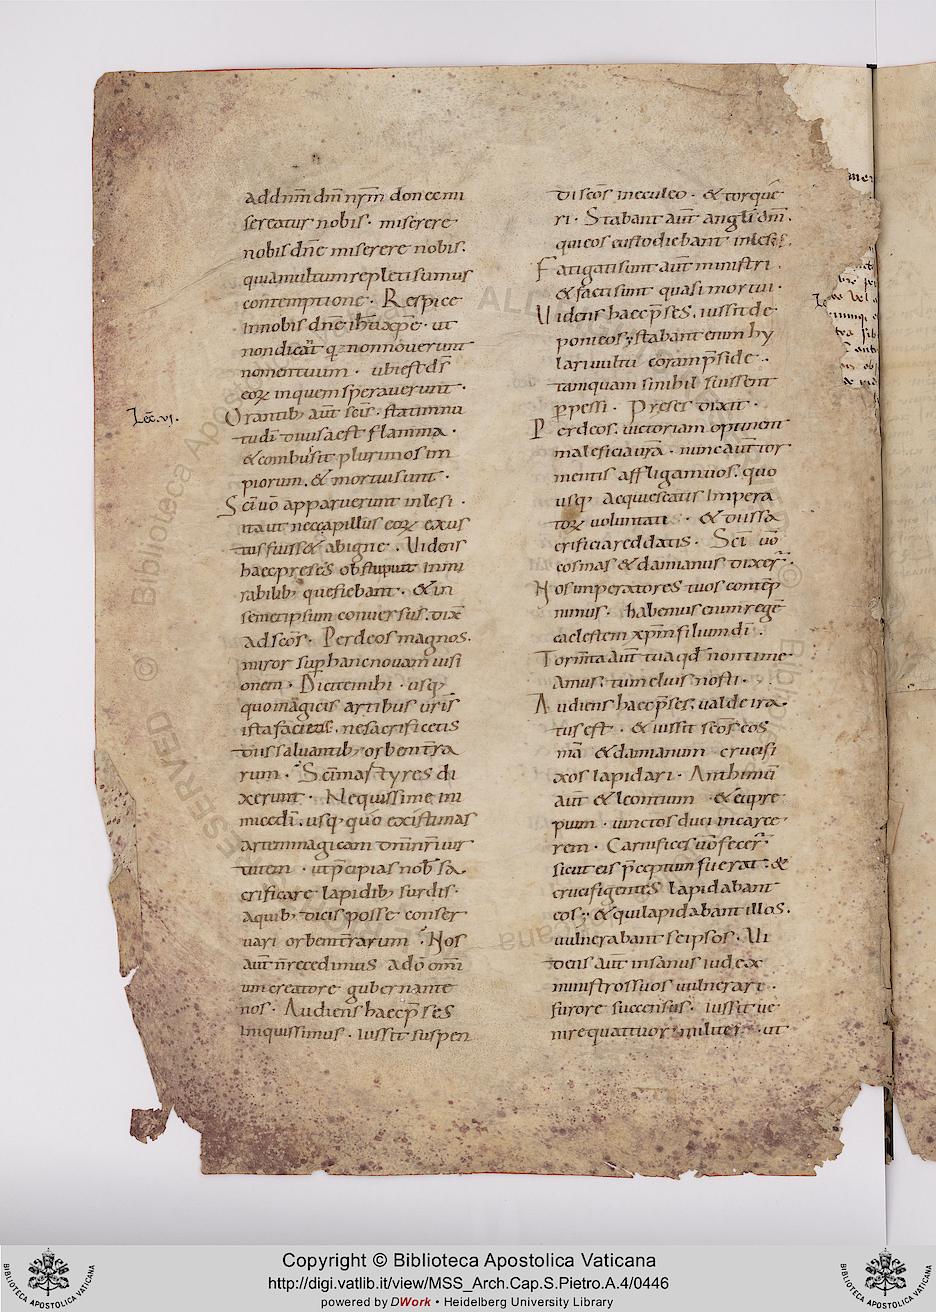 addnm̅ dm̅ nrm̅ donec mi
sereatur nobis. miserere
nobis dn̅e miserere nobis.
quia multum repleti sumus
contemptione. Respice
in nobis dn̅e ih̅u xp̅e. ut
non dicat̅ qꝫ non noverunt
nomen tuum. ubi est ds̅
eoꝝ in quem speraverunt.
Lec̅. vi.
Orantibꝫ aut̅ sc̅is. statim nu
tu di̅ divisa est flamma.
& combusit plurimos im
piorum. & mortui sunt.
Sc̅i vo̅ apparuerunt inlesi.
ita ut nec capillus eoꝝ exus
tus fuiss& ab igne. Videns
haec preses obstupuit in mi
rabilibꝫ que fiebant. & in
semetipsum conversus. dix̅
ad sc̅os. Per deos magnos.
miror sup̅ hanc novam visi
onem. Dicite mihi. usqꝫ
quo magicis artibus vr̅is
ista facietis. ne sacrificetis
diis salvantibꝫ orbem t̅ra
rum. Sc̅i martyres di
xerunt. Nequissime ini
mice di̅. usqꝫ quo existimas
artem magicam dn̅i nr̅i vir
tutem. ut p̅cipias nob̅ sa
crificare lapidibꝫ surdis.
a quibꝫ dicis posse conser
vari orbem t̅rarum. Nos
aut̅ n̅ recedimus a do̅ om̅i
um creatore gubernante
nos. Audiens haec p̅ses
iniquissimus. iussit suspen
di sc̅os in eculeo. & torque̅
ri. Stabant aut̅ angli dn̅i.
qui eos custodiebant inlesos.
Fatigati sunt aut̅ ministri.
& facti sunt quasi mortui.
Videns haec p̅ses. iussit de
poni eos; stabant enim hy
lari vultu coram p̅side.
tamquam si nihil fuissent
ꝑpessi. Preses dixit.
Per deos. victoriam optinent
maleficia vr̅a. nunc aut̅ tor
mentis affligam vos. quo
usqꝫ acquiescatis impera
toꝝ voluntati. & diis sa
crificia reddatis. Sc̅i vo̅
cosmas & damianus dixer̅.
Nos imperatores tuos conte̅p
nimus. habemus enim rege̅
caelestem xp̅m filium di̅.
Torm̅ta aut̅ tua qd̅ non time
amus; tum eius nosti.
Audiens haec p̅ses. valde ira
tus est. & iussit sc̅os cos
ma̅ & damianum crucifi
xos lapidari. Anthimu̅
aut̅ & leontium & eupre
pium. vinctos duci in carce
rem. Carnifices vo̅ fecer̅.
sicut eis p̅ceptum fuerat. &
crucifigentes lapidabant
eos; & qui lapidabant illos.
vulnerabant se ipsos. Vi
dens aut̅ insanus iudex
ministros suos vulnerari.
furore succensus. iussit ve
nire quattuor milites. ut
Copyright © Biblioteca Apostolica Vaticana
http://digi.vatlib.it/view/MSS_Arch.Cap.S.Pietro.A.4/0446
powered by DWork • Heidelberg University Library
BIBLIOTECA APOSTOLICA VATICANA
BIBLIOTECA APOSTOLICA VATICANA